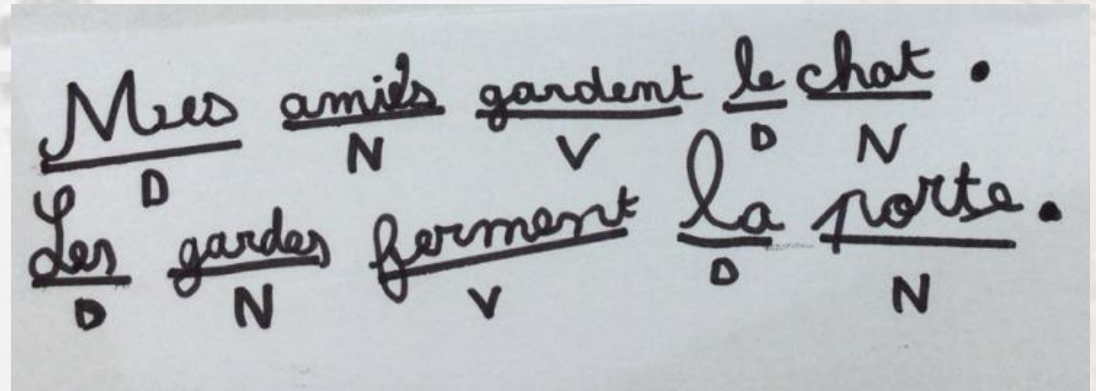 Mes amis gardent le chat .
D N V D N
Les gardes ferment la porte .
D N V D N